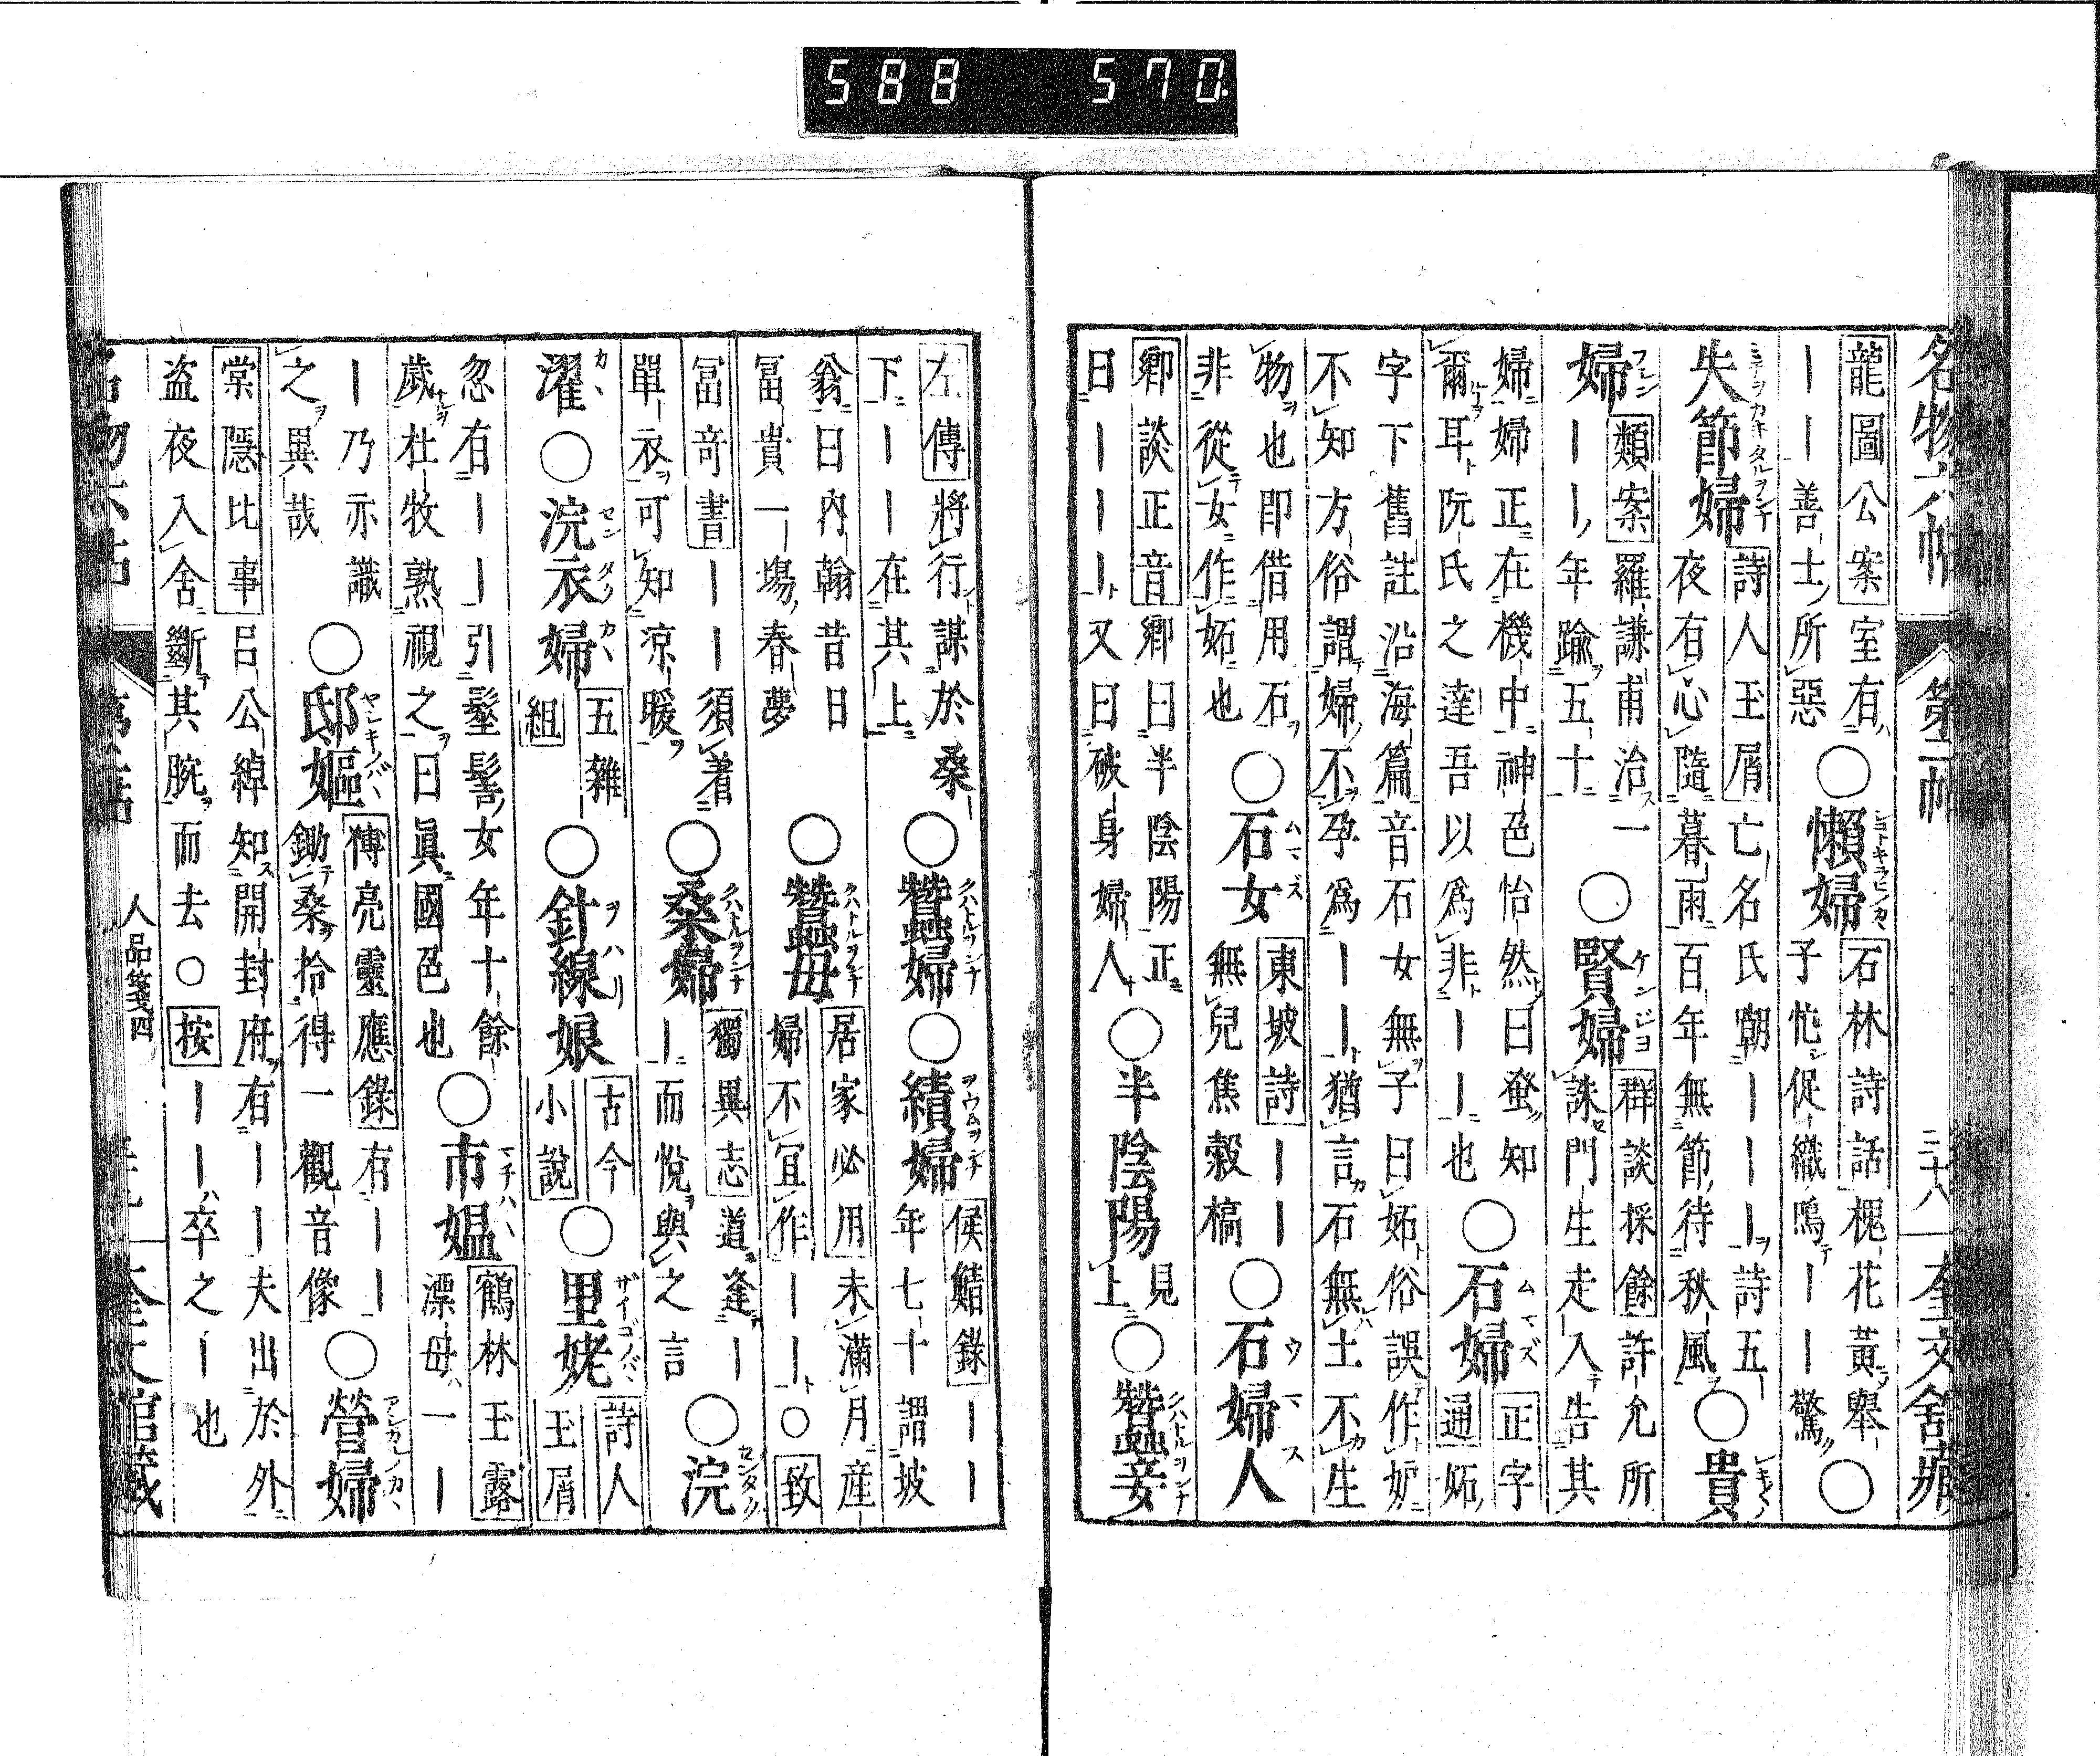 588 570
名物六帖 第二帖 三十八 奎文舘藏
龍圖公案室有
｜｜善士所惡
○懶婦石林詩話槐花黃舉
子忙促織鳴｜｜驚○
失節婦詩人玉屑亡名氏朝｜｜｜詩五
夜有心隨暮雨百年無節待秋風○貴
婦類案羅謙甫治一
｜｜年踰五十
○賢婦群談採餘許允所
誅門生走入告其
婦婦正在機中神色怡然曰蚤知
爾耳阮氏之達吾以爲非｜｜也
○石婦正字
通妬
字下舊註沿海篇音石女無子曰妬俗誤作妒
不知方俗謂婦不孕爲｜｜猶言石無土不生
物也卽借用石
非從女作妬也
○石女東坡詩｜｜
無兒焦穀槁
○石婦人
鄉談正音鄉曰半陰陽正
曰｜｜｜又曰破身婦人
○半陰陽見
上
○蠶妾
左傳將行謀於桑
下｜｜在其上
○蠶婦○績婦侯鯖錄｜｜
年七十謂坡
翁曰內翰昔日
冨貴一塲春夢
○蠶母居家必用未滿月產
婦不宜作｜｜○致
冨奇書｜｜須着
單衣可知涼暖
○桑婦獨異志道逢｜
｜而悅與之言
○浣
濯○浣衣婦五雜
組
○針線娘古今
小說
○里姥詩人
玉屑
忽有｜｜引髽髻女年十餘
歲杜牧熟視之曰眞國色也
○市媼鶴林玉露
漂母一｜
｜乃亦識
之異哉
○邸嫗傅亮靈應錄有｜｜
鋤桑拾得一觀音像
○營婦
棠隱比事呂公綽知開封府有｜｜夫出於外
盜夜入舍斷其腕而去○按｜｜卒之｜也
人品箋四